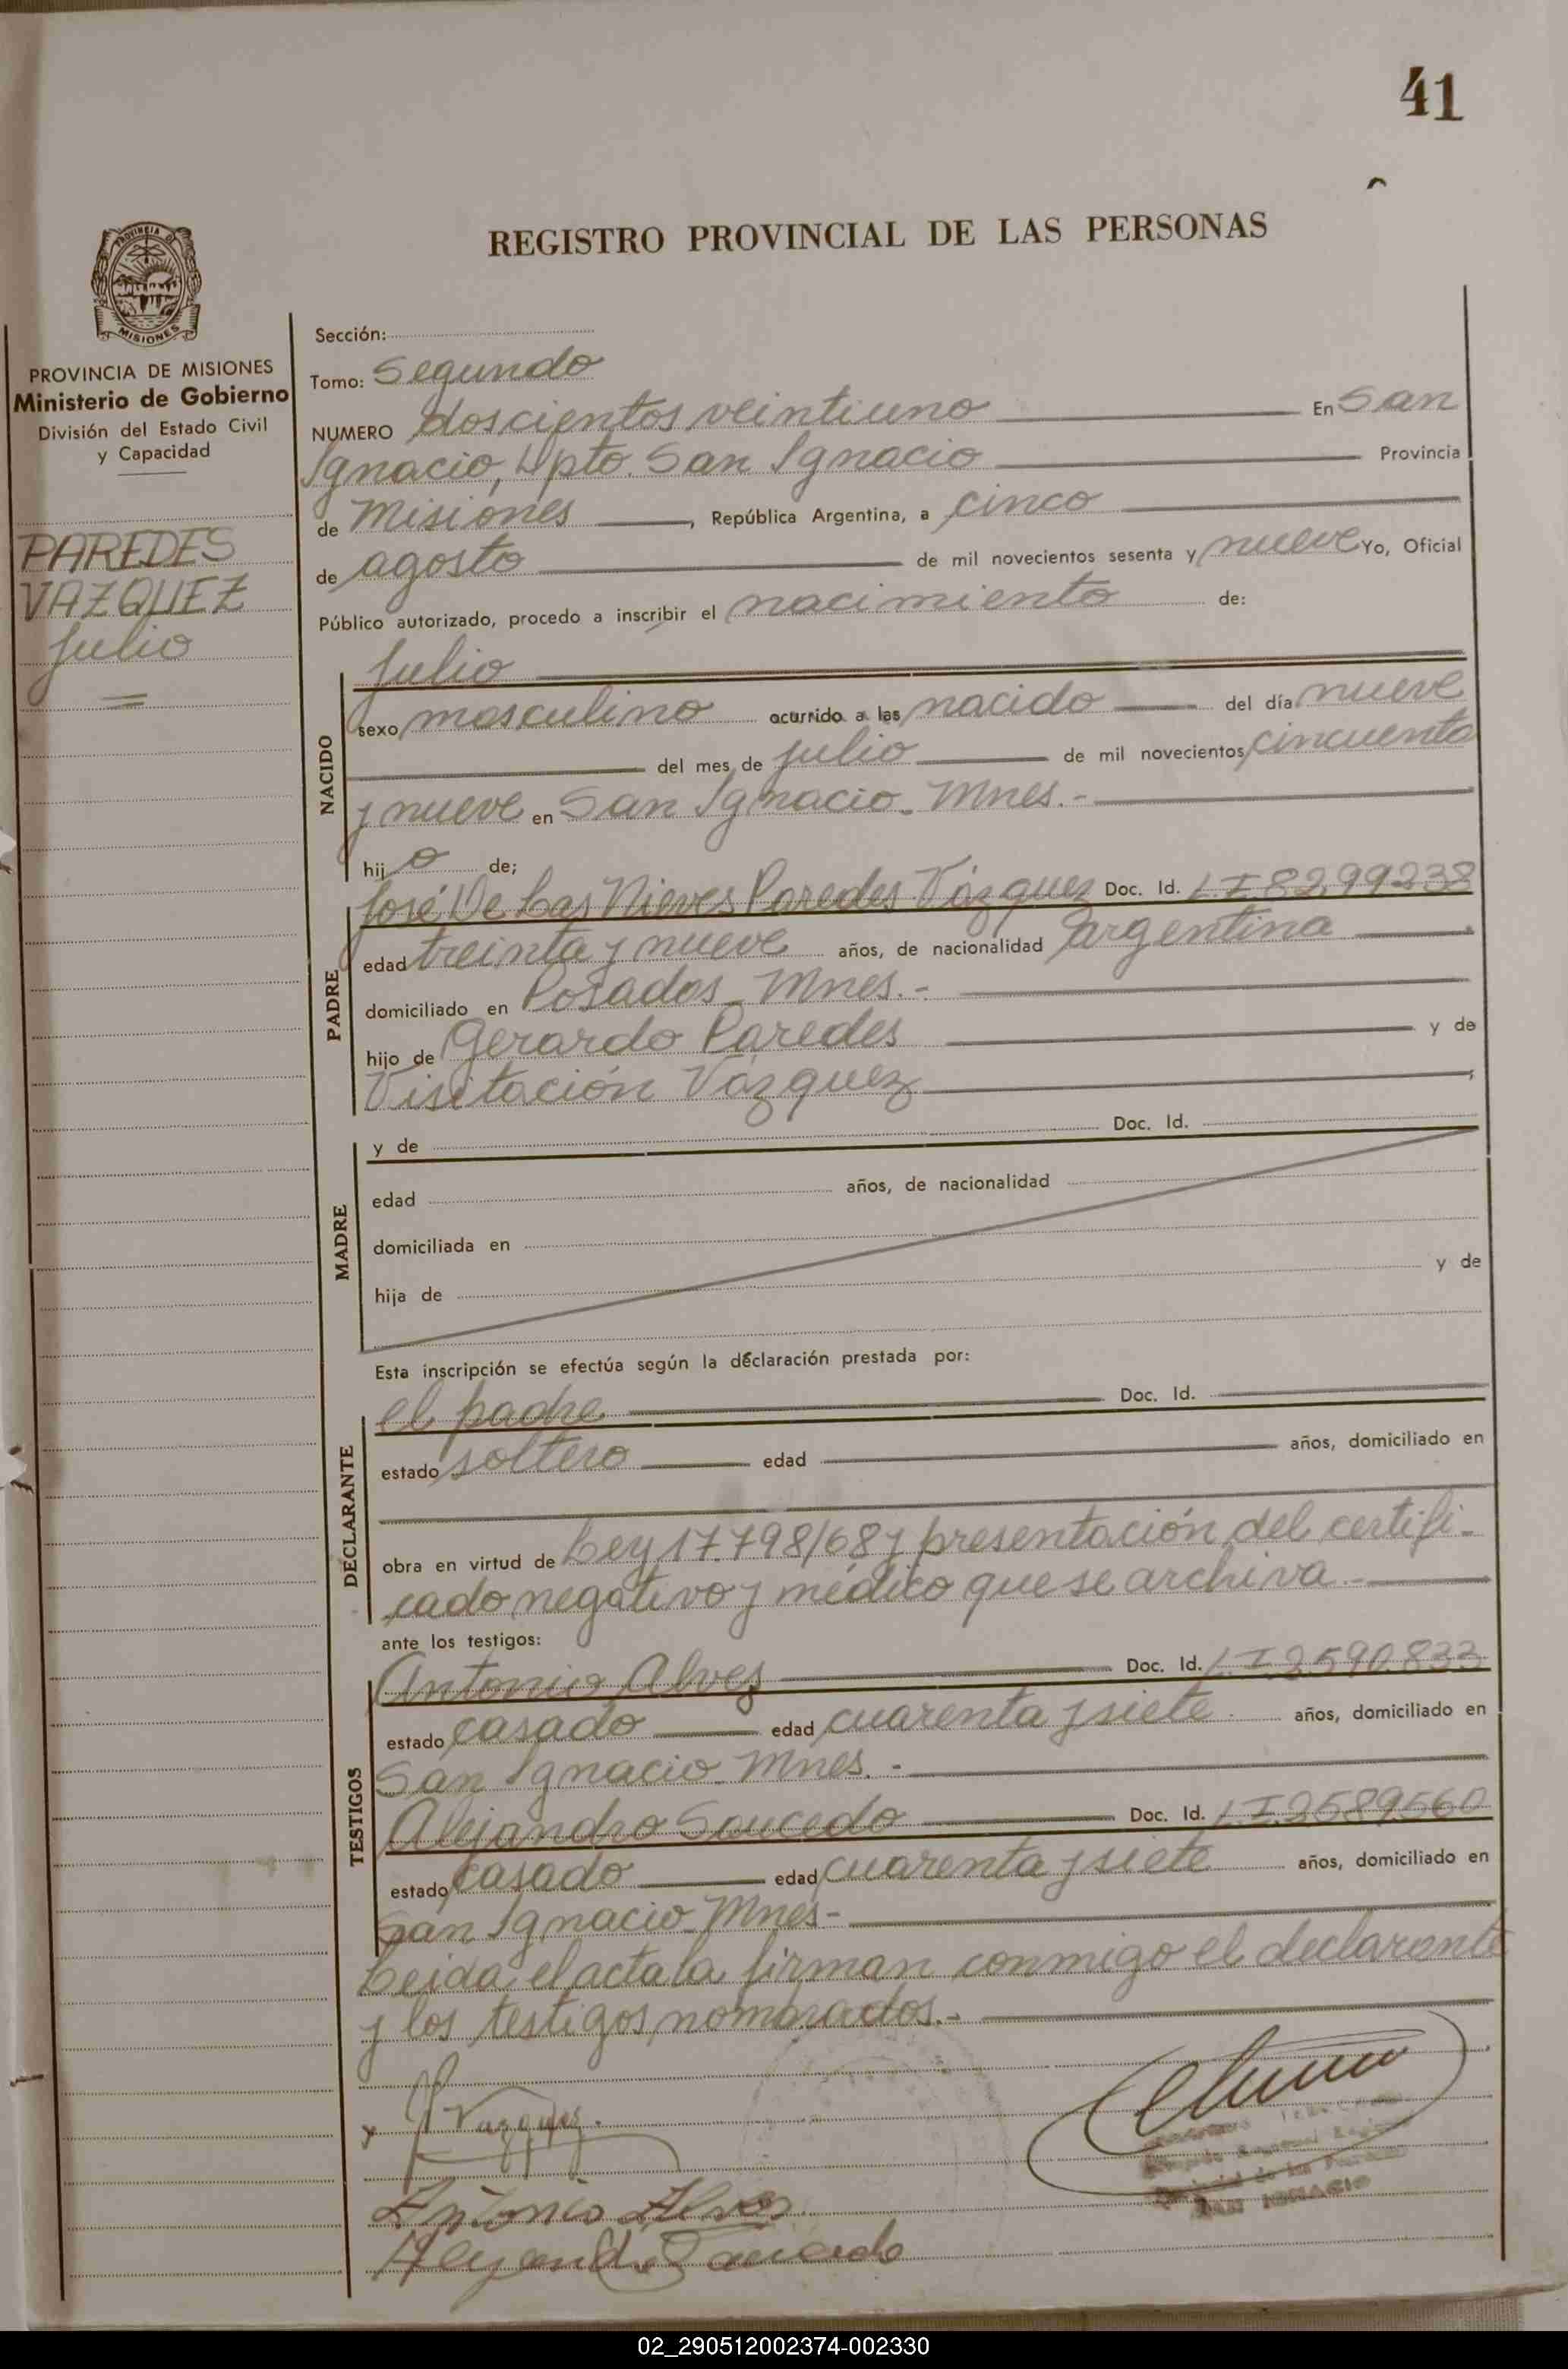 41
REGISTRO PROVINCIAL DE LAS PERSONAS
PROVINCIA DE
MISIONES
PROVINCIA DE MISIONES
Ministerio de Gobierno
División del Estado Civil
y Capacidad
PAREDES
VAZQUEZ
Julio
Sección:
Tomo: Segundo
NUMERO doscientos veintiuno En San
Ignacio, Dpto. San Ignacio Provincia
de Misiones, República Argentina, a cinco
de agosto de mil novecientos sesenta y nueve Yo, Oficial
Público autorizado, procedo a inscribir el nacimiento de:
NACIDO
Julio
sexo masculino ocurrido a las nacido del día nueve
del mes de julio de mil novecientos cincuenta
y nueve en San Ignacio - Mnes.-
hijo de;
PADRE
José De Las Nieves Paredes Vázquez Doc. Id. L.I 8299238
edad treinta y nueve años, de nacionalidad Argentina
domiciliado en Posadas - Mnes.-
hijo de Gerardo Paredes y de
Visitación Vázquez
MADRE
y de Doc. Id.
edad años, de nacionalidad
domiciliada en
hija de y de
Esta inscripción se efectúa según la declaración prestada por:
DECLARANTE
el padre Doc. Id.
estado soltero edad años, domiciliado en
obra en virtud de Ley 17.798/68 y presentación del certifi-
cado negativo y médico que se archiva.-
ante los testigos:
TESTIGOS
Antonio Alvez Doc. Id. L.I 2.590.833
estado casado edad cuarenta y siete años, domiciliado en
San Ignacio - Mnes.-
Alejandro Saucedo Doc. Id. L.I 2589560
estado casado edad cuarenta y siete años, domiciliado en
San Ignacio - Mnes-
Leida el acta la firman conmigo el declarante
y los testigos nombrados.-
Vazquez.
Antonio Alves
Alejandro Saucedo
SAN IGNACIO
02_290512002374-002330